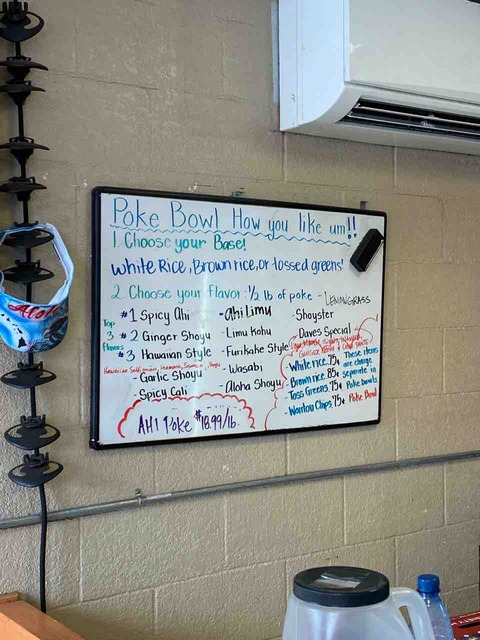 Poke Bowl How you like um!!
1. Choose your Base!
White Rice, Brown rice, or tossed greens!
2. Choose your flavor: 1/2 lb of poke - LEMONGRASS
Top 3 flavors
#1 Spicy Ahi
#2 Ginger Shoyu
#3 Hawaiian Style
- Garlic Shoyu
- Spicy Cali
- Ahi Limu
- Limu Kohu
- Furikake Style
- Wasabi
- Aloha Shoyu
- Shoyster
- Daves Special
- White rice .75¢
- Brown rice .85¢
- Toss Greens .75¢
- Wontou Chips .75¢
These items
are charge
separate in
Poke bowls
Poke Bowl
AHI Poke $18.99/lb.
Aloha